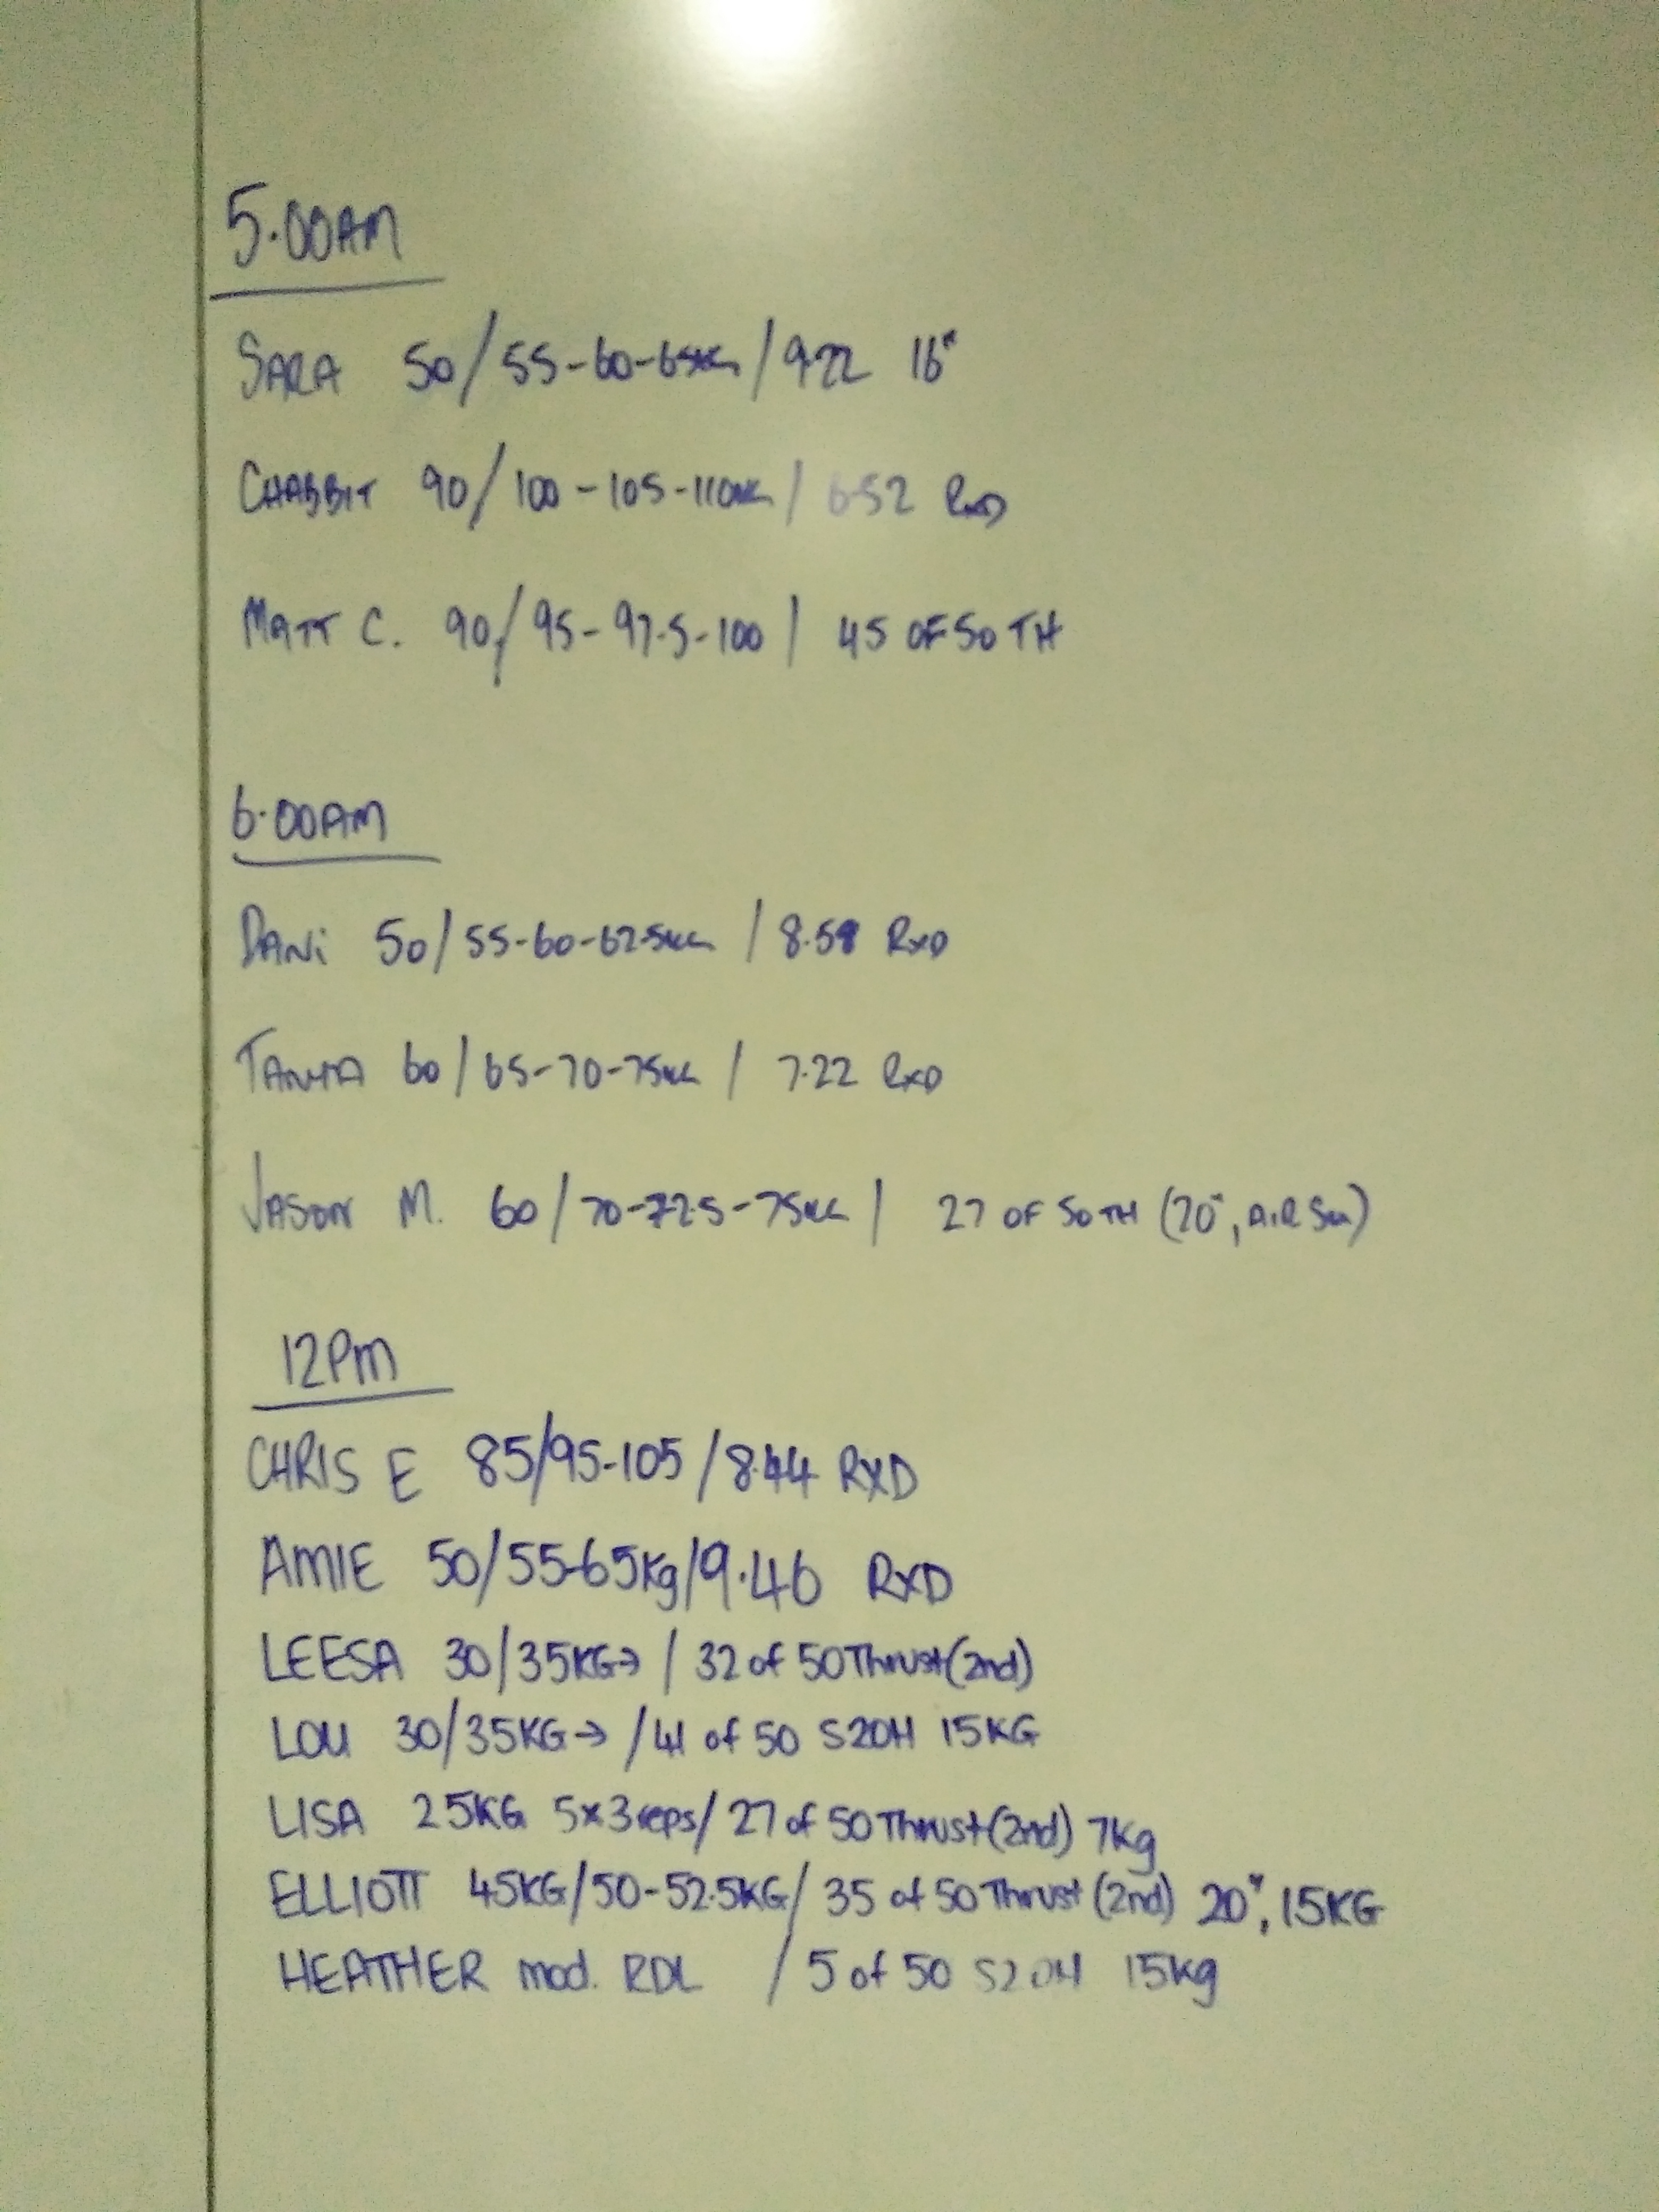 5.00AM
SARA 50/55-60-65KG/9.22 16"
CHABBIT 90/100-105-110KG/6.52 RXD
MATT C. 90/95-97.5-100/45 OF 50 TH
6.00AM
DANi 50/55-60-62.5KG/8.59 RXD
TANYA 60/65-70-75KG/7.22 RXD
JASON M. 60/70-72.5-75KG/27 OF 50 TH (20", AIR SQ)
12PM
CHRIS E 85/95-105/8.44 RXD
AMIE 50/55-65Kg/9.46 RXD
LEESA 30/35KG→/32 of 50 Thrust(2nd)
LOU 30/35KG→/41 of 50 S2OH 15KG
LISA 25KG 5x3reps/27 of 50 Thrust(2nd) 7Kg
ELLIOTT 45KG/50-52.5KG/35 of 50 Thrust (2nd) 20", 15KG
HEATHER mod. RDL /5 of 50 S2OH 15kg